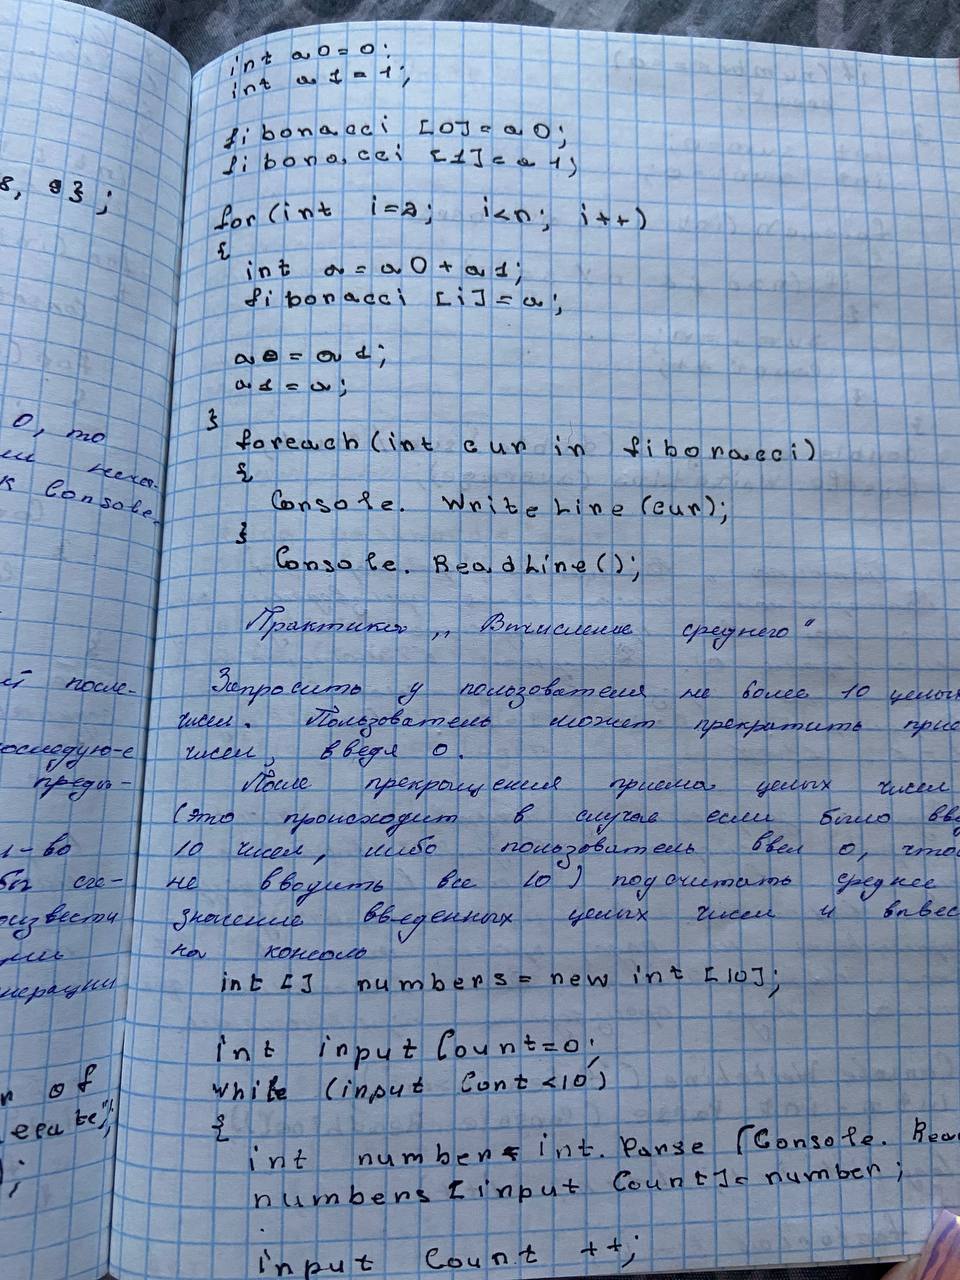 8, 9};
0, то
к Console.
й после-
последую-е
преды-
л-во
бы сге-
оизвести
нерации
n of
ecute");
);
int a0=0;
int a1=1;
fibonacci [0]=a0;
fibonacci [1]=a1;
for(int i=2; i<n; i++)
{
int a=a0+a1;
fibonacci [i]=a;
a0=a1;
a1=a;
}
foreach(int cur in fibonacci)
{
Console. WriteLine(cur);
}
Console. ReadLine();
Практика „Вычисление среднего“
Запросить у пользователя не более 10 целых
чисел. Пользователь может прекратить прие
чисел, введя 0.
После прекращения приема целых чисел
(это происходит в случае если было вве
10 чисел, либо пользователь ввел 0, чтоб
не вводить все 10) подсчитать среднее
значение введенных целых чисел и вывес
на консоль
int [] numbers=new int [10];
int input Count=0;
while (input Cont<10)
{
int number= int. Parse (Console. Rea
numbers [input Count]= number;
input Count ++;